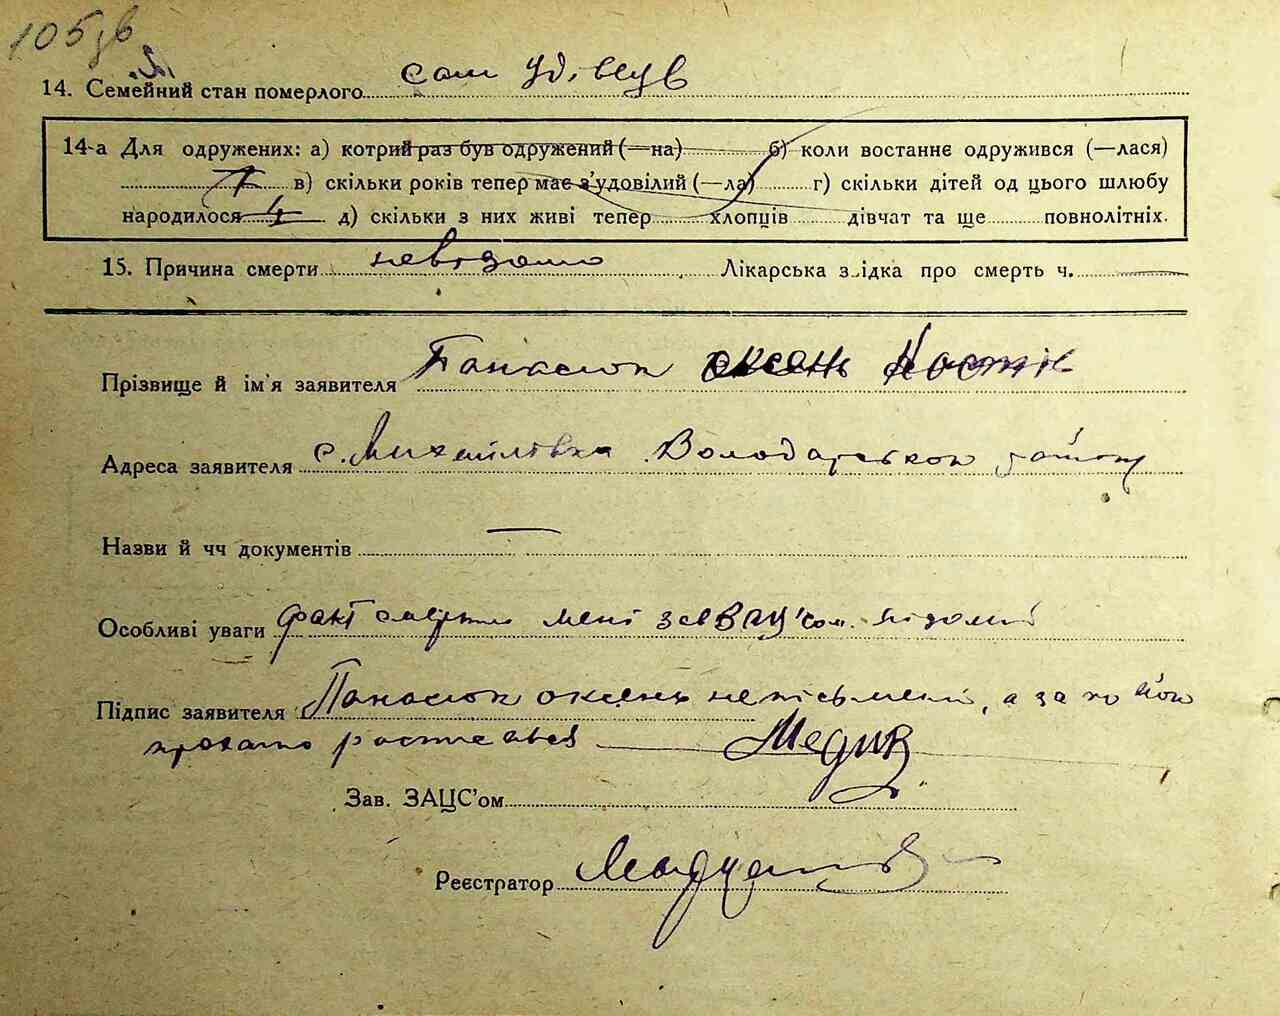 105 зв
14. Семейний стан померлого
14-а Для одружених: а) котрий раз був одружений (—на) б) коли востаннє одружився (—лася)
в) скільки років тепер має з'удовілий (—ла) г) скільки дітей од цього шлюбу
народилося д) скільки з них живі тепер хлопців дівчат та ще повнолітніх.
15. Причина смерти невідомо Лікарська звідка про смерть ч.
Прізвище й ім'я заявителя Панасюк Оксень
Адреса заявителя с. Михайлівка Володарського району
Назви й чч документів —
Особливі уваги факт смерти мені завЗАЦ'сом відомий
Підпис заявителя Панасюк Оксень неписьмений, а за його
прохатю росписався
Зав. ЗАЦС'ом
Реєстратор